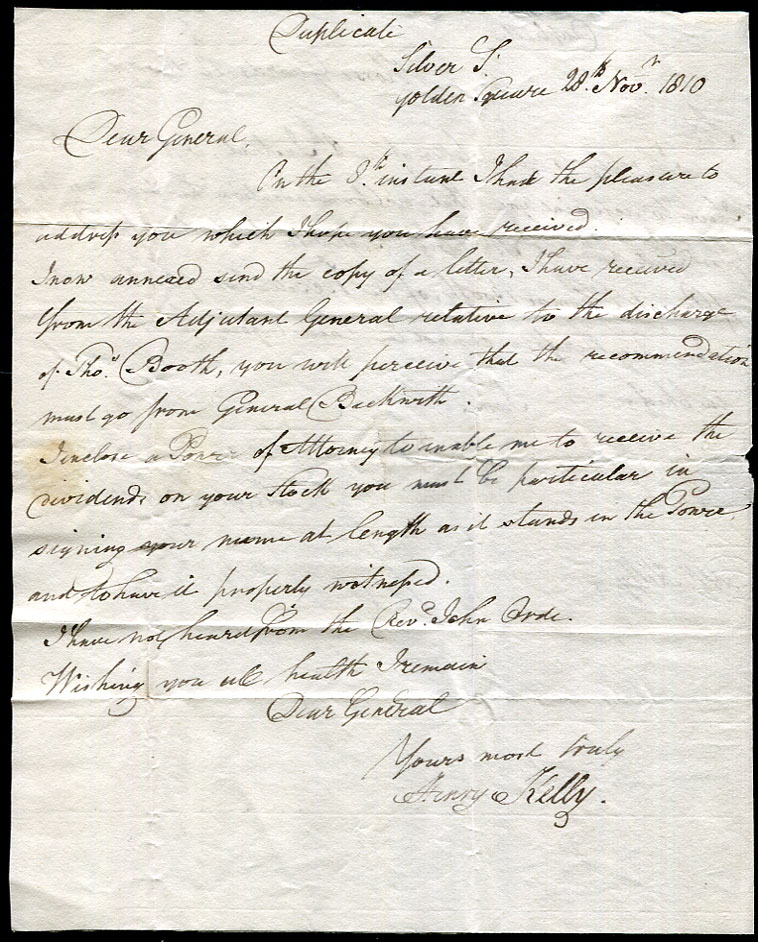 Duplicate
Silver S.
golden Square 28th Novr. 1810
Dear General,
On the instant I had the pleasure to
address you which I hope you have received.
I now annexed send the copy of a letter, I have received
from the Adjutant General relative to the discharge
of Thos. Booth, you will perceive that the recommendation
must go from General Beckwith.
I inclose a Power of Attorney to enable me to receive the
dividends on your Stock you must be particular in
signing your name at length as it stands in the Power
and to have it properly witnessed.
I have not heard from the Revd. John Orde.
Wishing you all health I remain
Dear General
Yours most truly
Henry Kelly.